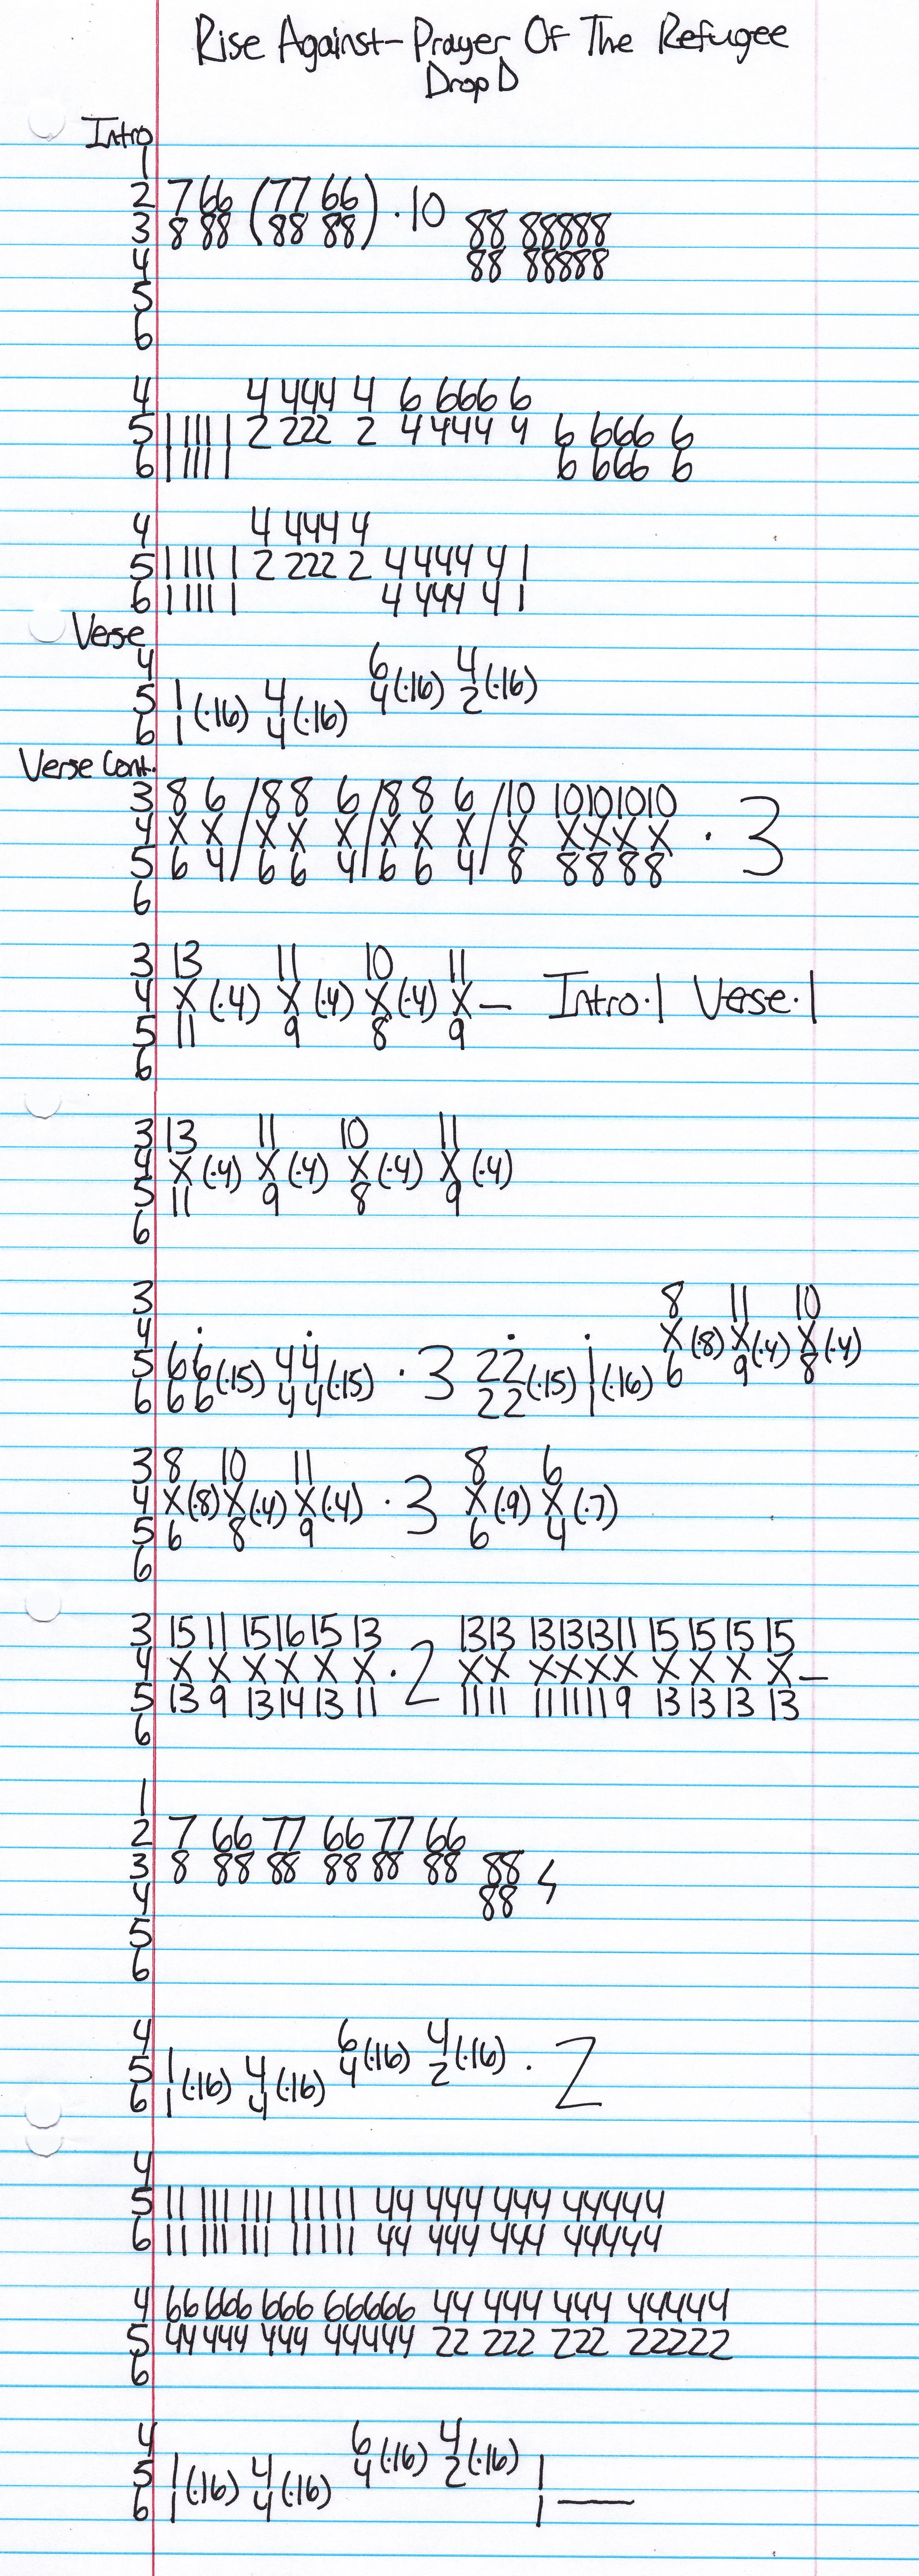 Rise Against - Prayer Of The Refugee
Drop D
Intro
1
2 7 66 (77 66) · 10
3 8 88 (88 88) 88 88888
4 88 88888
5
6
4 4 444 4 6 666 6
5 1 111 1 2 222 2 4 444 4 6 666 6
6 1 111 1 6 666 6
4 4 444 4
5 1 111 1 2 222 2 4 444 4 1
6 1 111 1 4 444 4 1
Verse
4 6 4
5 1 (·16) 4 (·16) 4 (·16) 2 (·16)
6 1 4
Verse Cont.
3 8 6 / 8 8 6 / 8 8 6 / 10 10101010
4 X X / X X X / X X X / X X X X X · 3
5 6 4 / 6 6 4 / 6 6 4 / 8 8 8 8 8
6
3 13 11 10 11
4 X (·4) X (·4) X (·4) X — Intro·1 Verse·1
5 11 9 8 9
6
3 13 11 10 11
4 X (·4) X (·4) X (·4) X (·4)
5 11 9 8 9
6
3 8 11 10
4 . . . . X (·8) X (·4) X (·4)
5 66 (·15) 44 (·15) · 3 22 (·15) 1 (·16) 6 9 8
6 66 44 22 1
3 8 10 11 8 6
4 X (·8) X (·4) X (·4) · 3 X (·9) X (·7)
5 6 8 9 6 4
6
3 15 11 15 16 15 13 1313 13131311 15 15 15 15
4 X X X X X X · 2 XX XXXX X X X X —
5 13 9 13 14 13 11 1111 1111119 13 13 13 13
6
1
2 7 66 77 66 77 66
3 8 88 88 88 88 88 88
4 88
5
6
4 6 4
5 1 (·16) 4 (·16) 4 (·16) 2 (·16) · 2
6 1 4
4
5 11 111 111 11111 44 444 444 44444
6 11 111 111 11111 44 444 444 44444
4 66 666 666 66666 44 444 444 44444
5 44 444 444 44444 22 222 222 22222
6
4 6 4
5 1 (·16) 4 (·16) 4 (·16) 2 (·16) 1
6 1 4 1 —